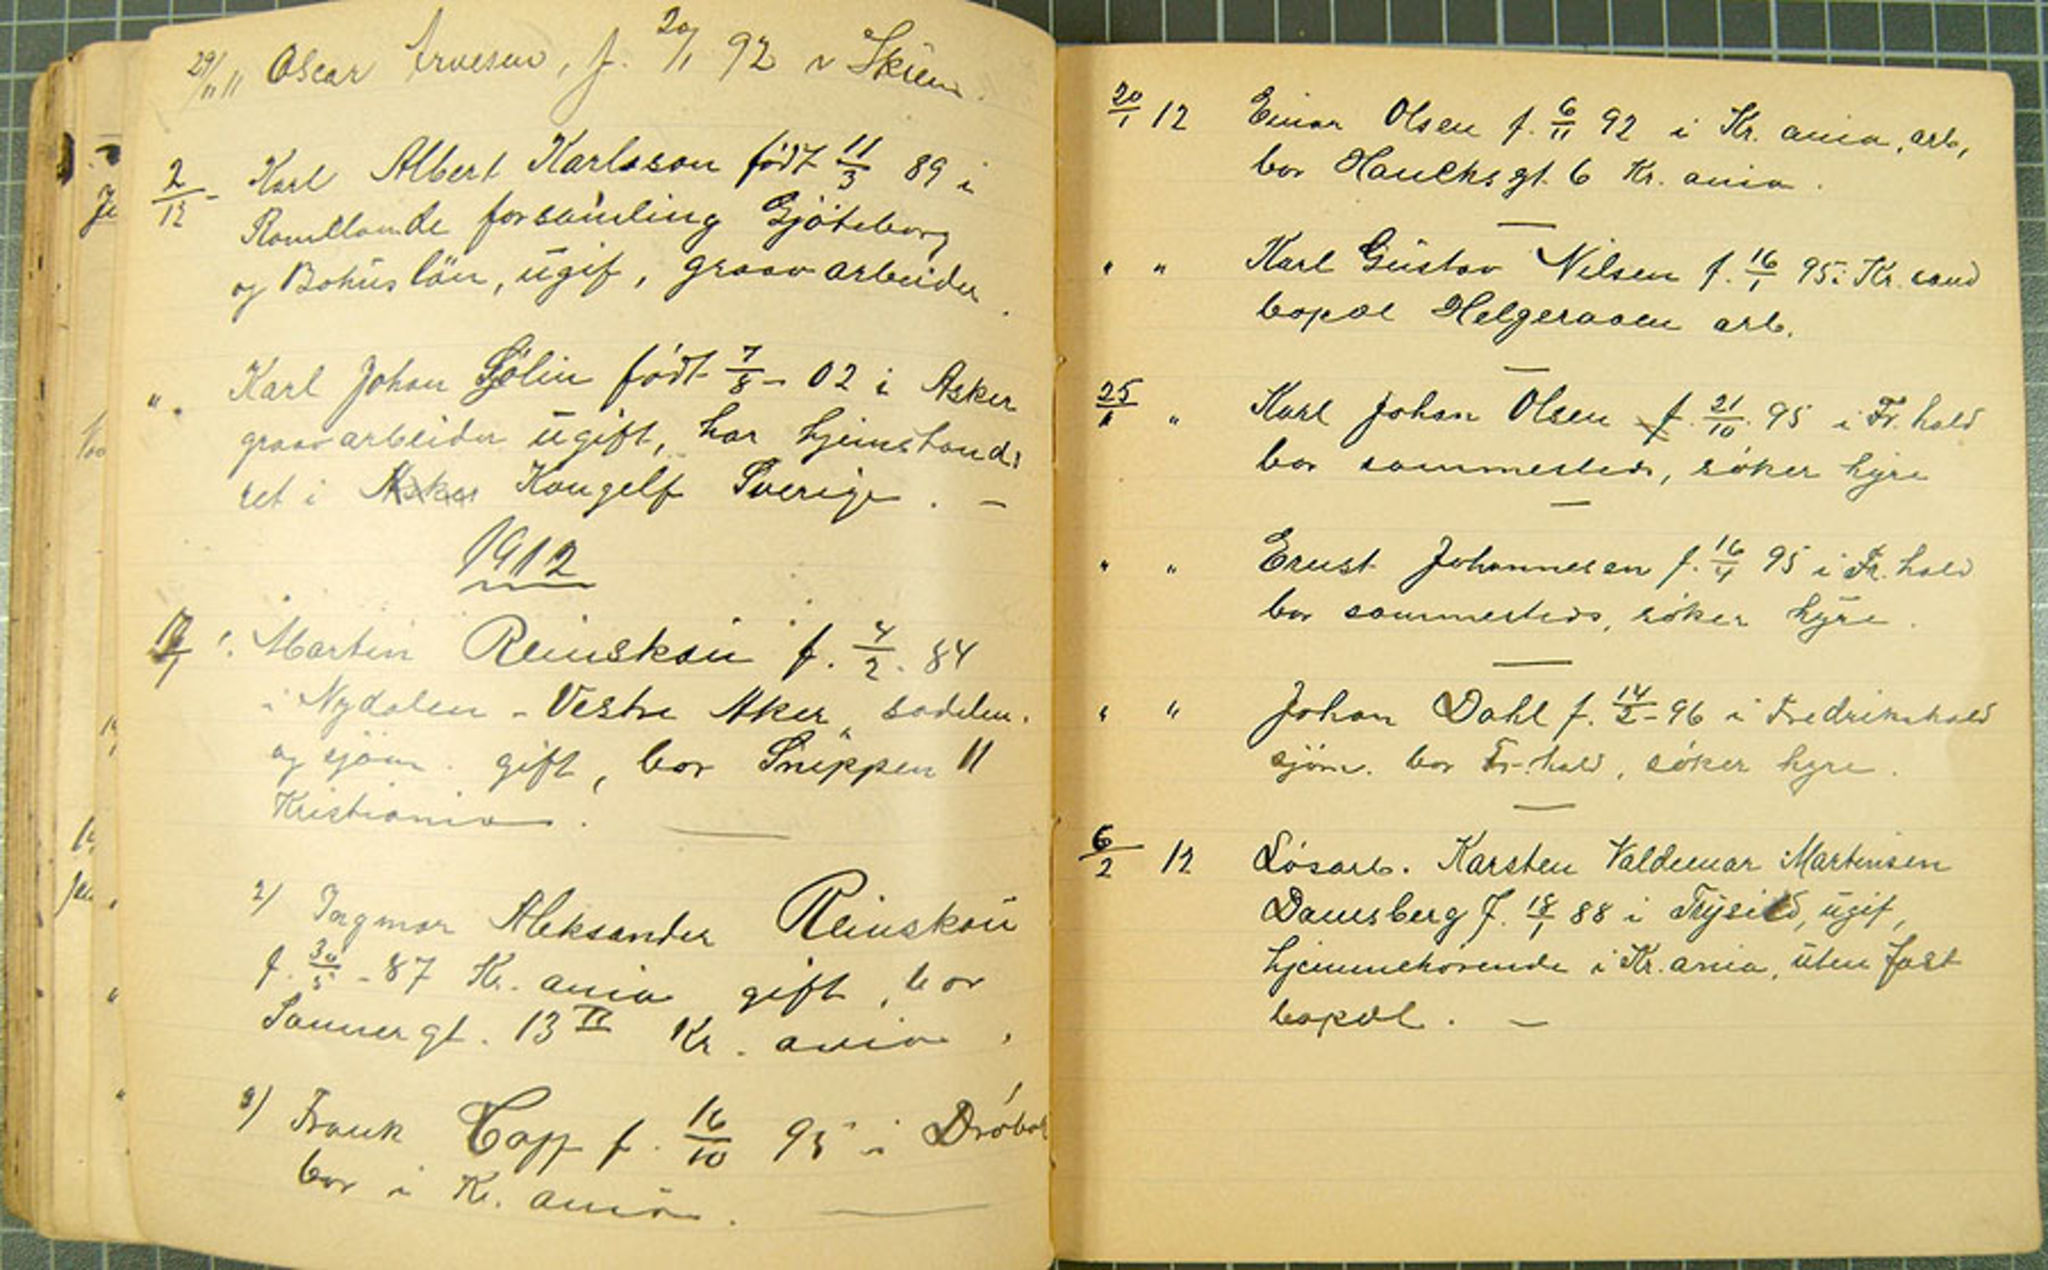 29/11 11 Oscar Arvesen, f. 20/1 92 v Skien.
2/12 - Karl Albert Karlsson født 11/3 89 i
Romelanda forsamling Gjøteborg
og Bohus län, ugif, graavarbeider.
" . Karl Johan Sjölin født 7/8 - 02 i Asker
graavarbeider ugift, har hjemstands
ret i Kongelf Sverige. —
1912
/1 1. Martin Reinskau f. 4/2 - 84
i Nydalen - Vestre Aker, sadelm.
og sjøm. gift, bor Snippen 11
Kristiania.
2) Ingmar Aleksander Reinskau
f. 30/5 - 87 Kr. ania gift, bor
Sannergt. 13 II Kr. ania.
3) Frank Capp f. 16/10 95 i Drøbak
bor i Kr. ania.
20/1 12 Einar Olsen f. 6/11 92 i Kr. ania, arb,
bor Hauchsgt. 6 Kr. ania.
" " Karl Gustav Nilsen f. 16/1 95 i Kr. sand
bopæl Helgeroaen arb.
25/1 " Karl Johan Olsen f. 21/10 95 i Fr. hald
bor sammesteds, søker hyre
" " Ernst Johannesen f. 16/4 95 i Fr. hald
bor sammesteds, søker hyre.
" " Johan Dahl f. 14/2 - 96 i Fredrikshald
sjøm. bor Fr. hald, søker hyre.
6/2 12 Løsarb. Karsten Valdemar Martinsen
Damsberg f. 18/1 88 i Trysild, ugif,
hjemmehørende i Kr. ania, uten fast
bopæl. —